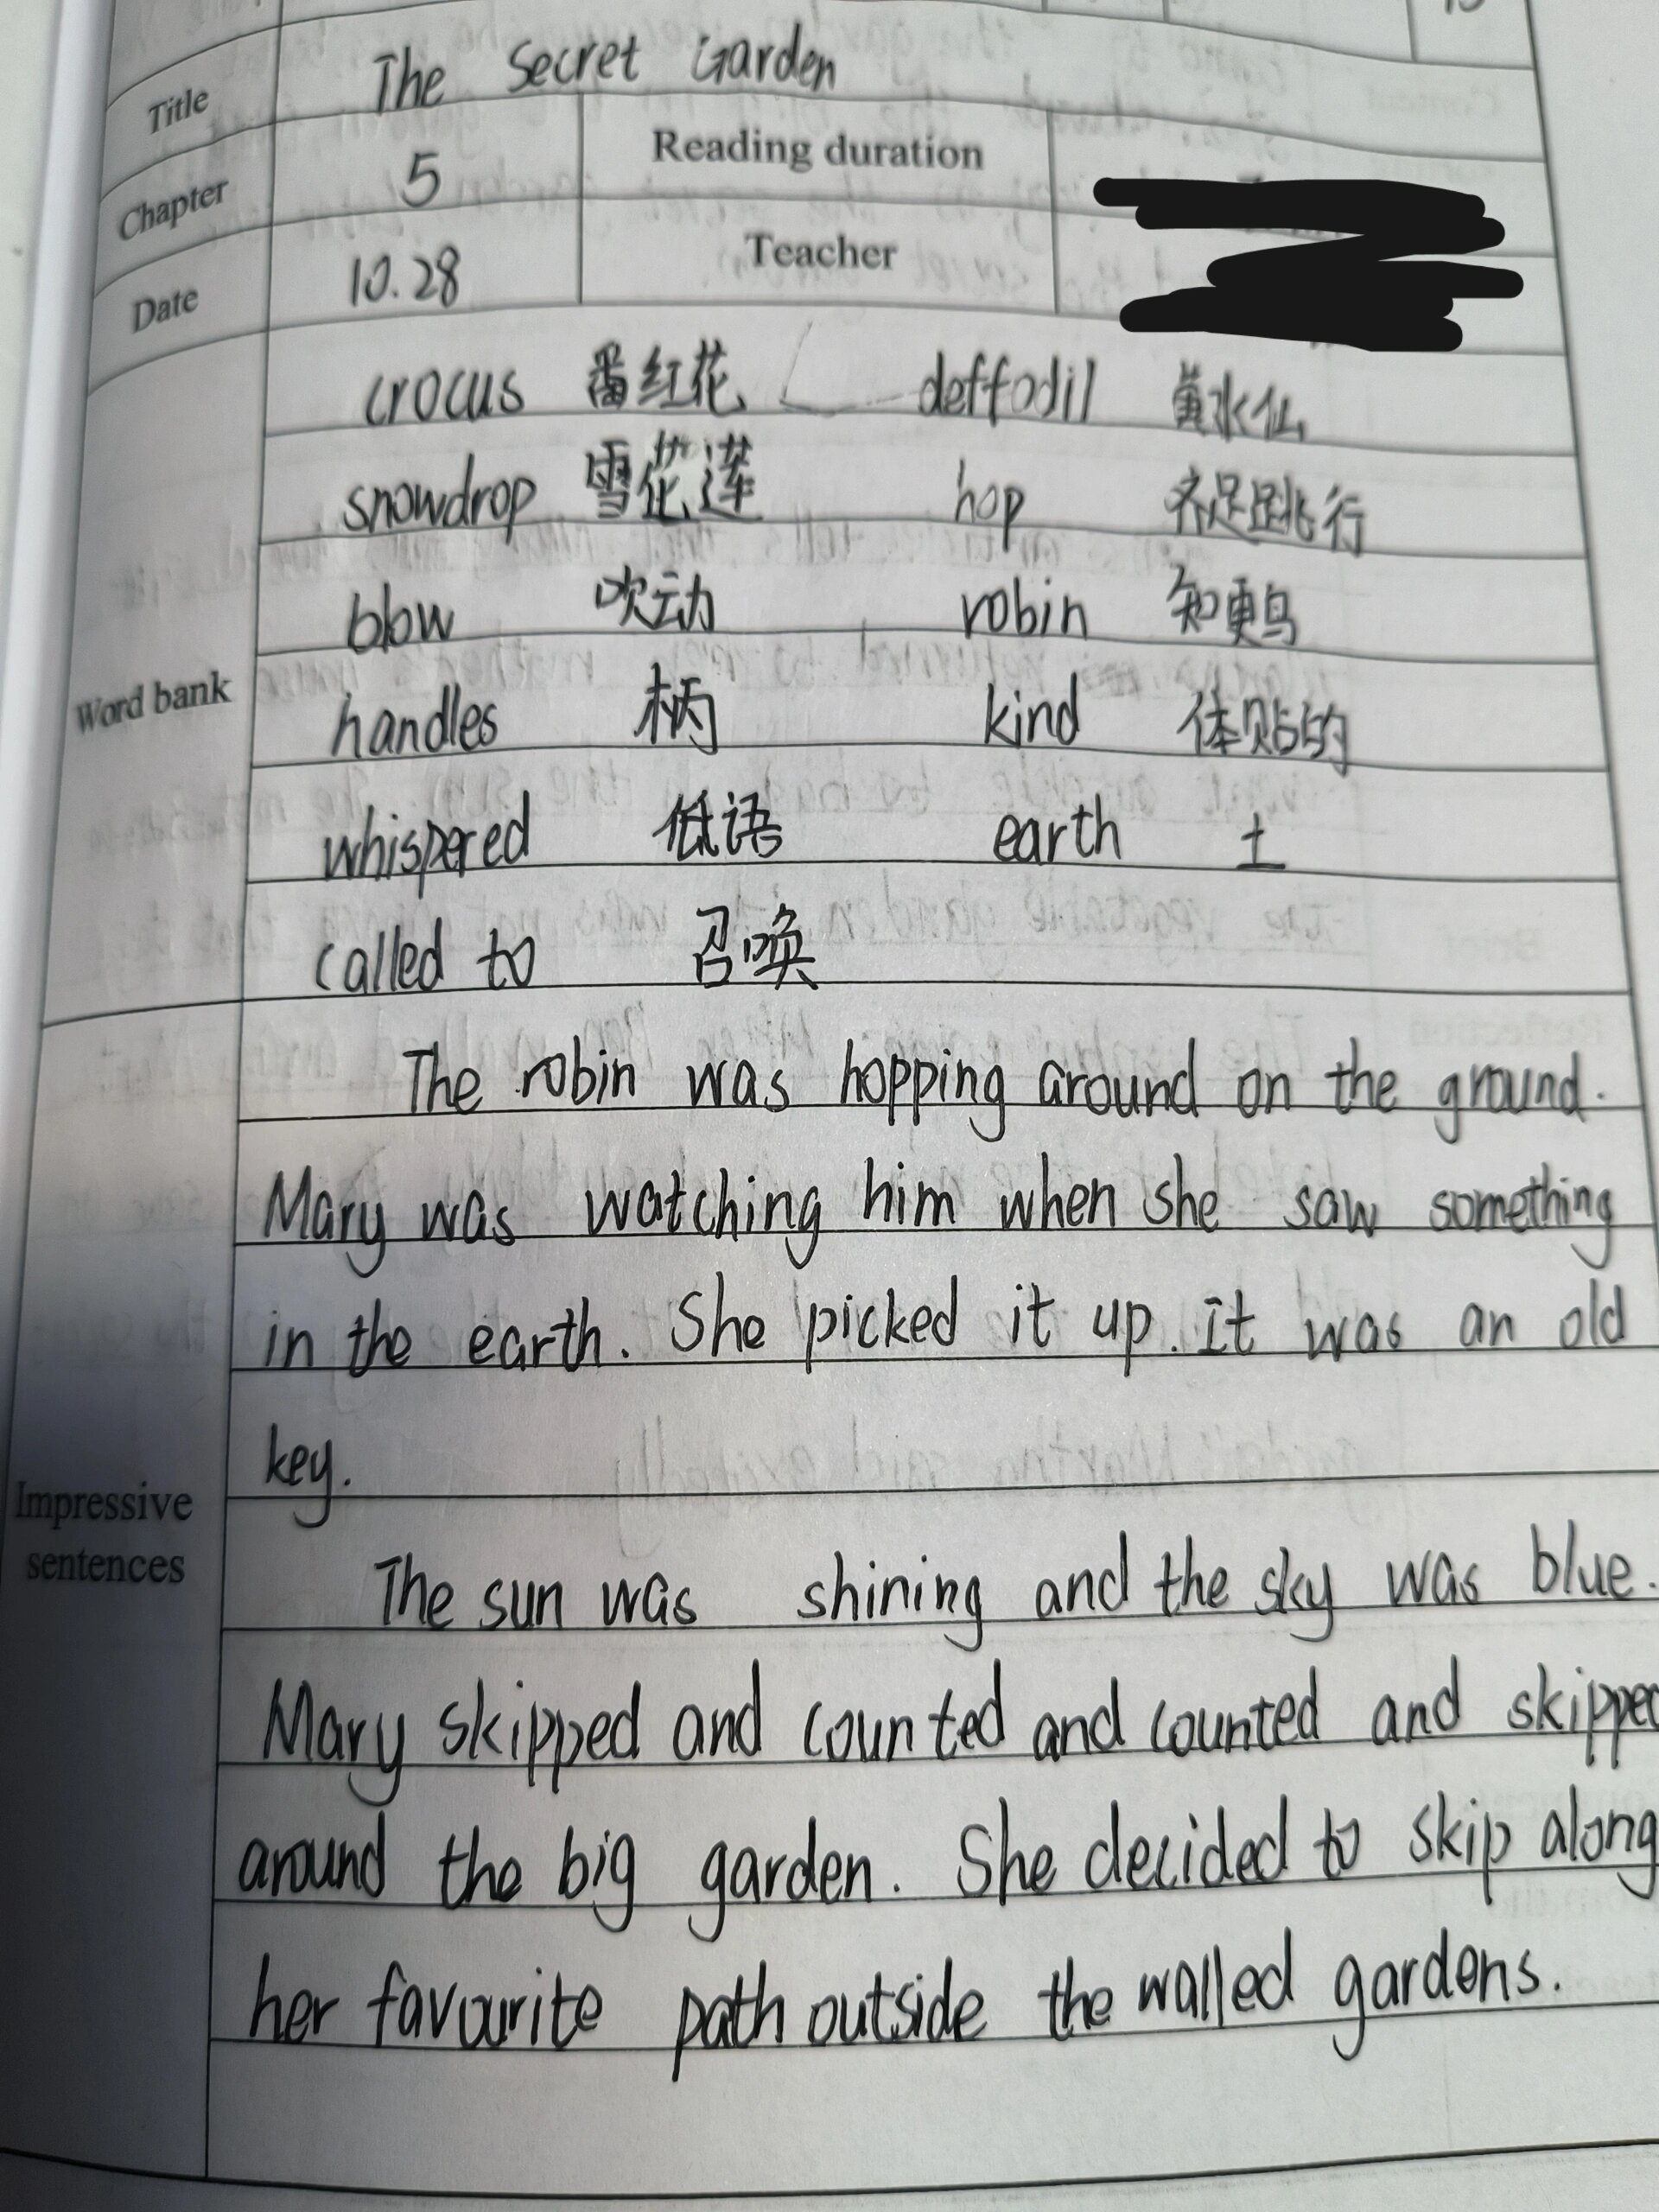 Title The Secret Garden
Chapter 5 Reading duration
Date 10.28 Teacher
Word bank
crocus 番红花 deffodil 黄水仙
snowdrop 雪花莲 hop 齐足跳行
blow 吹动 robin 知更鸟
handles 柄 kind 体贴的
whispered 低语 earth 土
called to 召唤
Impressive sentences
The robin was hopping around on the ground.
Mary was watching him when she saw something
in the earth. She picked it up. it was an old
key.
The sun was shining and the sky was blue.
Mary skipped and counted and counted and skipped
around the big garden. She decided to skip along
her favourite path outside the walled gardens.